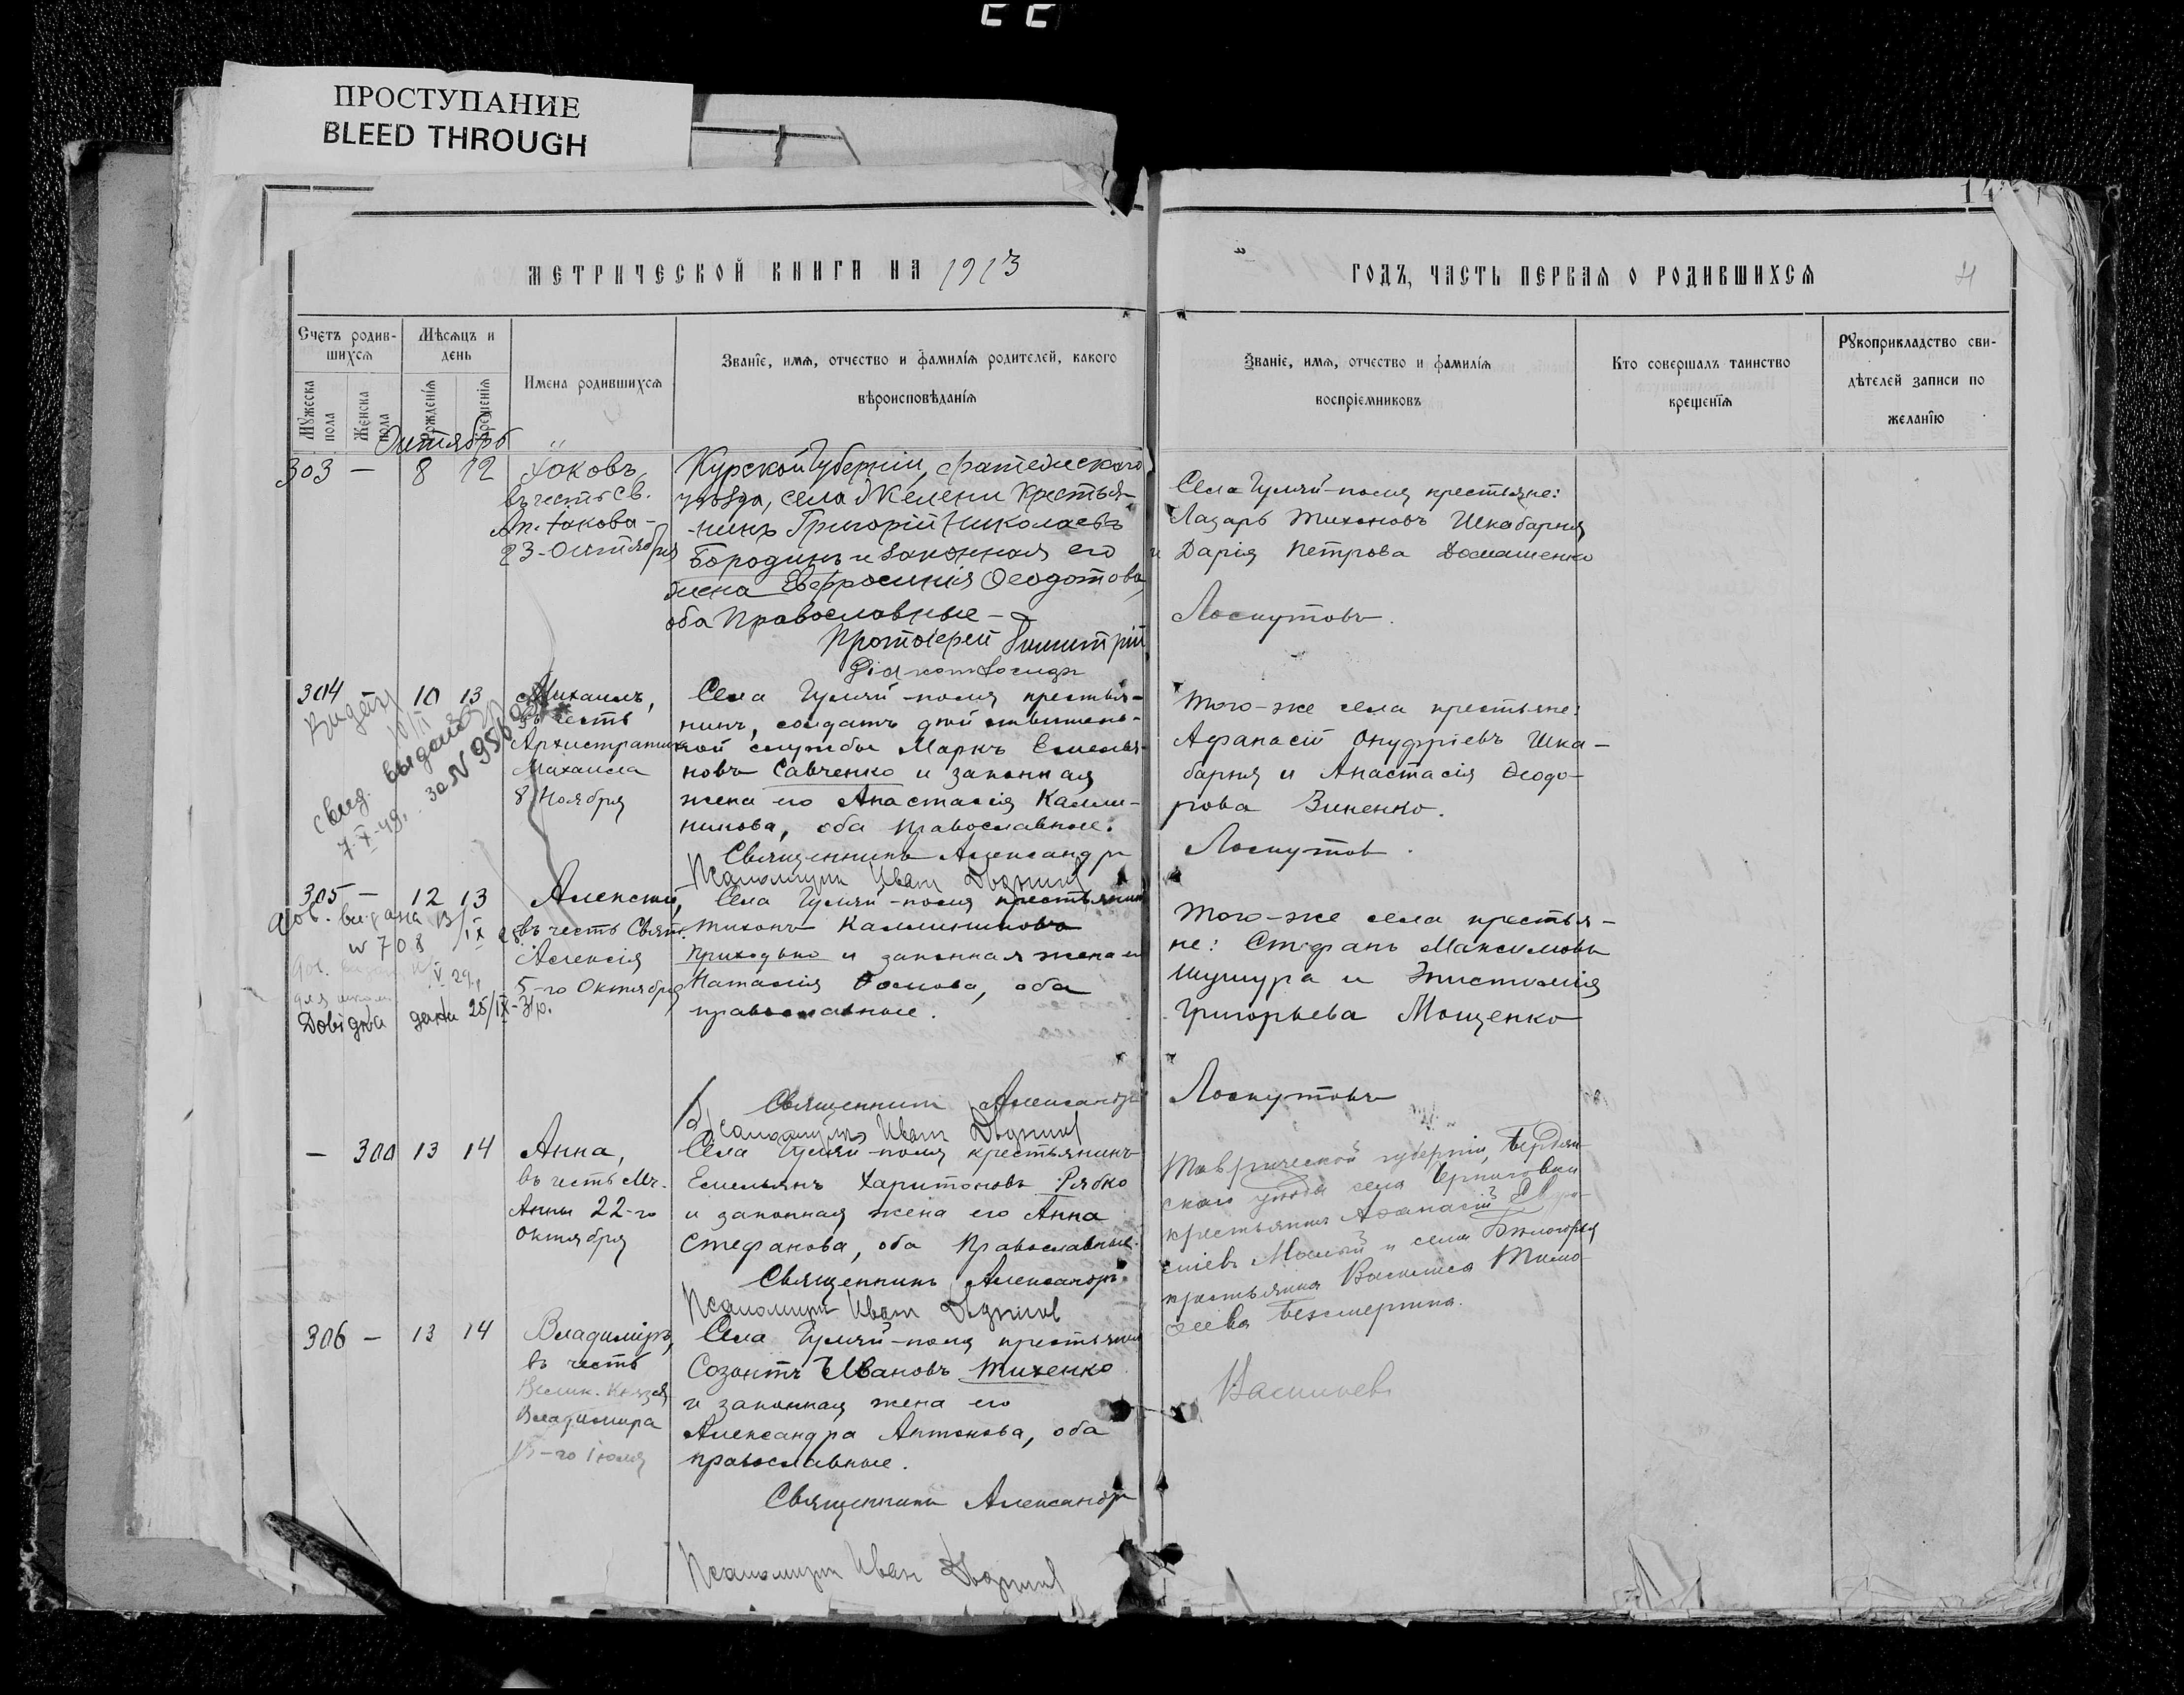 ПРОСТУПАНИЕ
BLEED THROUGH
14
МЕТРИЧЕСКОЙ КНИГИ НА 1913
ГОДЪ, ЧАСТЬ ПЕРВАЯ О РОДИВШИХСЯ
Счетъ родив-
шихся
Мѣсяцъ и
день
Мужеска
пола
Женска
пола
рожденія
крещенія
Имена родившихся
Званіе, имя, отчество и фамилія родителей, какого
вѣроисповѣданія
Званіе, имя, отчество и фамилія
воспріемниковъ
Кто совершалъ таинство
крещенія
Рукоприкладство сви-
дѣтелей записи по
желанію
Октябрь
303 — 8 12
Іаковъ
въ честь Св.
Ап. Іакова -
23-Октября
Курской Губерніи, Фатежскаго
уѣзда, села Желени Крестья-
нинъ Григорій Николаевъ
Бородинъ и законная его
жена Евфросинія Ѳеодотова,
оба Православные -
Протоіерей Димитрій
Села Гуляй-поля крестьяне:
Лазарь Тихоновъ Шкабарня
и Дарія Петрова Домашенко
Лоскутовъ.
304 10 13
свид. выдано
7-X-49. за N 95
Михаилъ,
въ честь
Архистратига
Михаила
8 Ноября
Села Гуляй-поля крестья-
нинъ, солдатъ дѣйствитель-
ной службы Маркъ Емелья-
новъ Савченко и законная
жена его Анастасія Калли-
никова, оба православные.
Священникъ Александръ
Псаломщикъ Иван
Того-же села крестьяне:
Афанасій Онуфріевъ Шка-
барня и Анастасія Ѳеодо-
рова Зиненко.
Лоскутов.
305 — 12 13
дов. видана 13/IX 28.
N 708
V 29.
Dовідка дана 25/IX-31р.
Алексій,
въ честь Свят.
Алексія
5-го Октября
Села Гуляй-поля крестьянинъ
Тихонъ Каллиниковъ
Приходько и законная жена его
Наталія Ѳомова, оба
православные.
Священникъ Александръ
Псаломщикъ Иван
Того-же села крестья-
не: Стефанъ Максимовъ
Шушура и Эпистимія
Григорьева Мощенко
Лоскутовъ
— 300 13 14
Анна,
въ честь Мч.
Анны 22-го
Октября
Села Гуляй-поля крестьянинъ
Емельянъ Харитоновъ Рябко
и законная жена его Анна
Стефанова, оба Православные.
Священникъ Александръ
Псаломщикъ Иван
Таврической губерніи, Бердян-
скаго уѣзда села Черниговки
крестьянинъ Аѳанасій
и села Бѣлогорья
крестьянка Василиса Тимо-
ѳеева Безсмертина.
306 — 13 14
Владиміръ,
въ честь
Велик. Князя
Владимира
15-го Іюля
Села Гуляй-поля крестьянинъ
Созонтъ Ивановъ Тихенко
и законная жена его
Александра Антонова, оба
православные.
Священникъ Александръ
Псаломщикъ Иван
Васильев